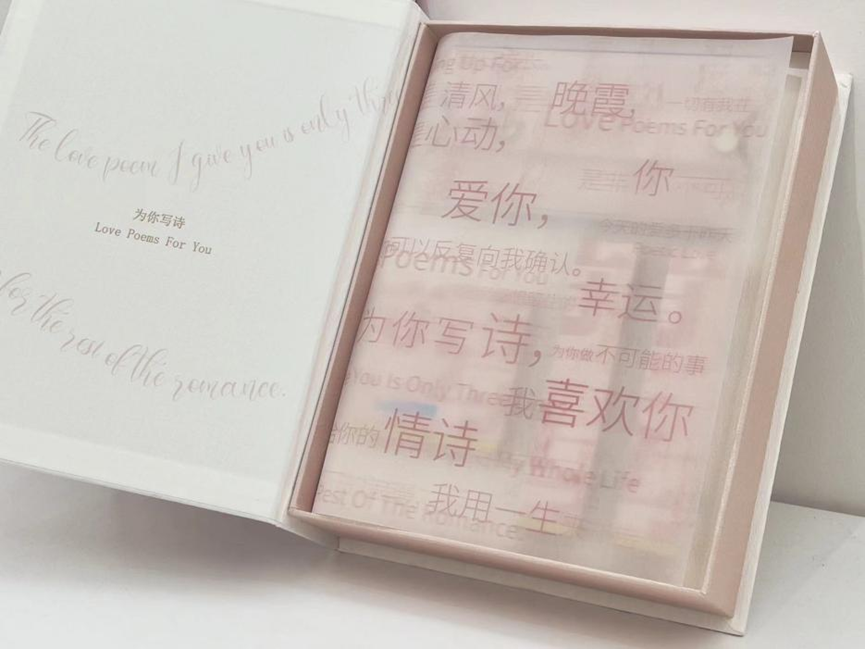 The love poem I give you is only thr
为你写诗
Love Poems For You
for the rest of the romance.
ng Up For
清风,
晚霞,
一切有我在
Love Poems For You
心动,
你
爱你,
可以反复向我确认。
Poems For You
幸运。
为你写诗,
为你做不可能的事
You Is Only Three
我喜欢你
给你的情诗
My Whole Life
我用一生
Rest Of The Romance